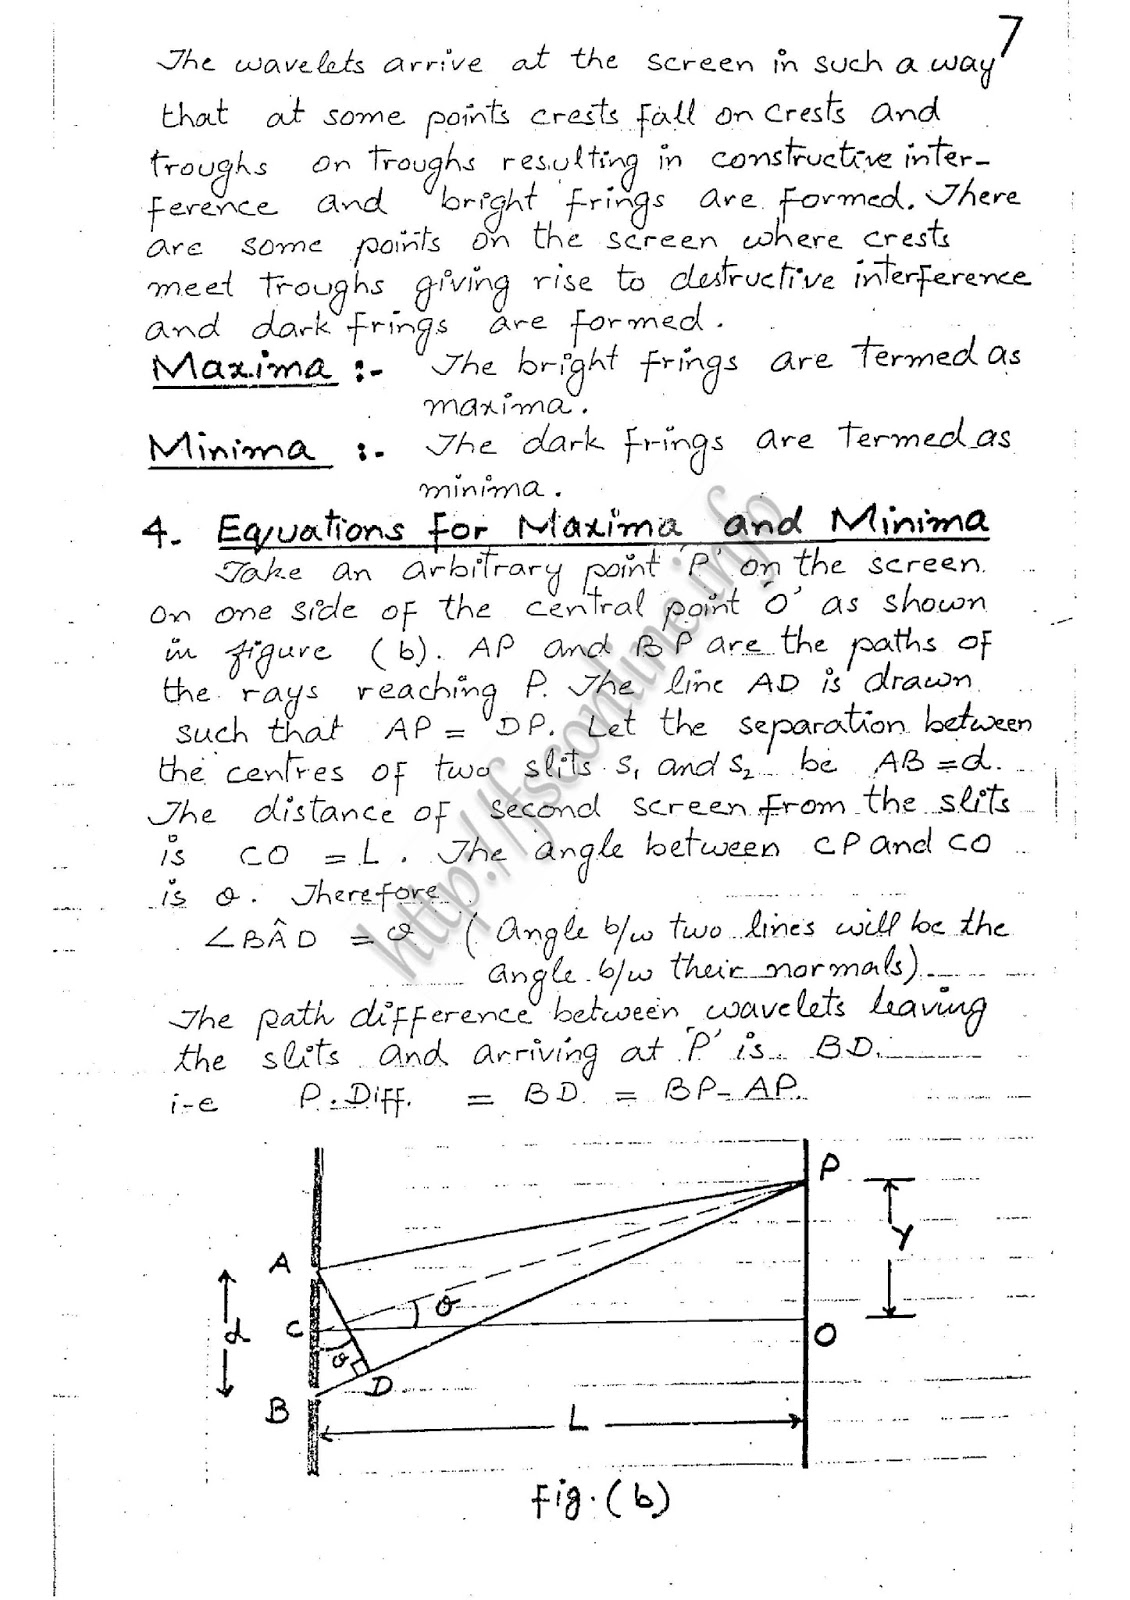 7
The wavelets arrive at the screen in such a way
that at some points crests fall on crests and
troughs on troughs resulting in constructive inter-
ference and bright frings are formed. There
are some points on the screen where crests
meet troughs giving rise to destructive interference
and dark frings are formed.
Maxima :- The bright frings are termed as
maxima.
Minima :- The dark frings are termed as
minima.
4. Equations for Maxima and Minima
Take an arbitrary point 'P' on the screen
on one side of the central point 'O' as shown
in figure (b). AP and BP are the paths of
the rays reaching P. The line AD is drawn
such that AP = DP. Let the separation between
the centres of two slits S₁ and S₂ be AB = d.
The distance of second screen from the slits
is CO = L. The angle between CP and CO
is θ. Therefore
∠BÂD = θ (Angle b/w two lines will be the
angle b/w their normals)
The path difference between wavelets leaving
the slits and arriving at 'P' is BD.
i-e P.Diff. = BD = BP - AP.
P
Y
A
θ
d
C
O
θ
D
B
L
Fig.(b)
http://fsconline.info